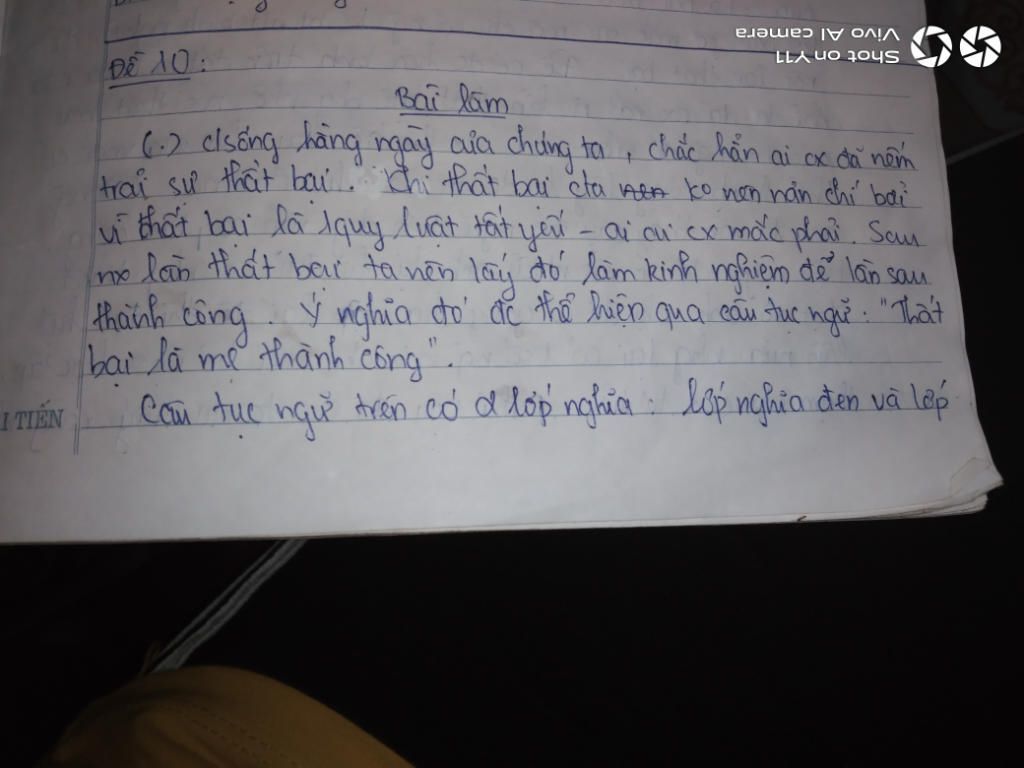 Đề 10:
Bài làm
(.) c/sống hàng ngày của chúng ta, chắc hẳn ai cx đã nếm
trải sự thất bại. Khi thất bại cta ko nên nản chí bại
vì thất bại là 1 quy luật tất yếu - ai ai cx mắc phải. Sau
mo lần thất bại ta nên lấy đó làm kinh nghiệm để lần sau
thành công. Ý nghĩa đó đc thể hiện qua câu tục ngữ: "Thất
bại là mẹ thành công".
Câu tục ngữ trên có 2 lớp nghĩa: lớp nghĩa đen và lớp
I TIẾN
Shot on Y11
Vivo AI camera